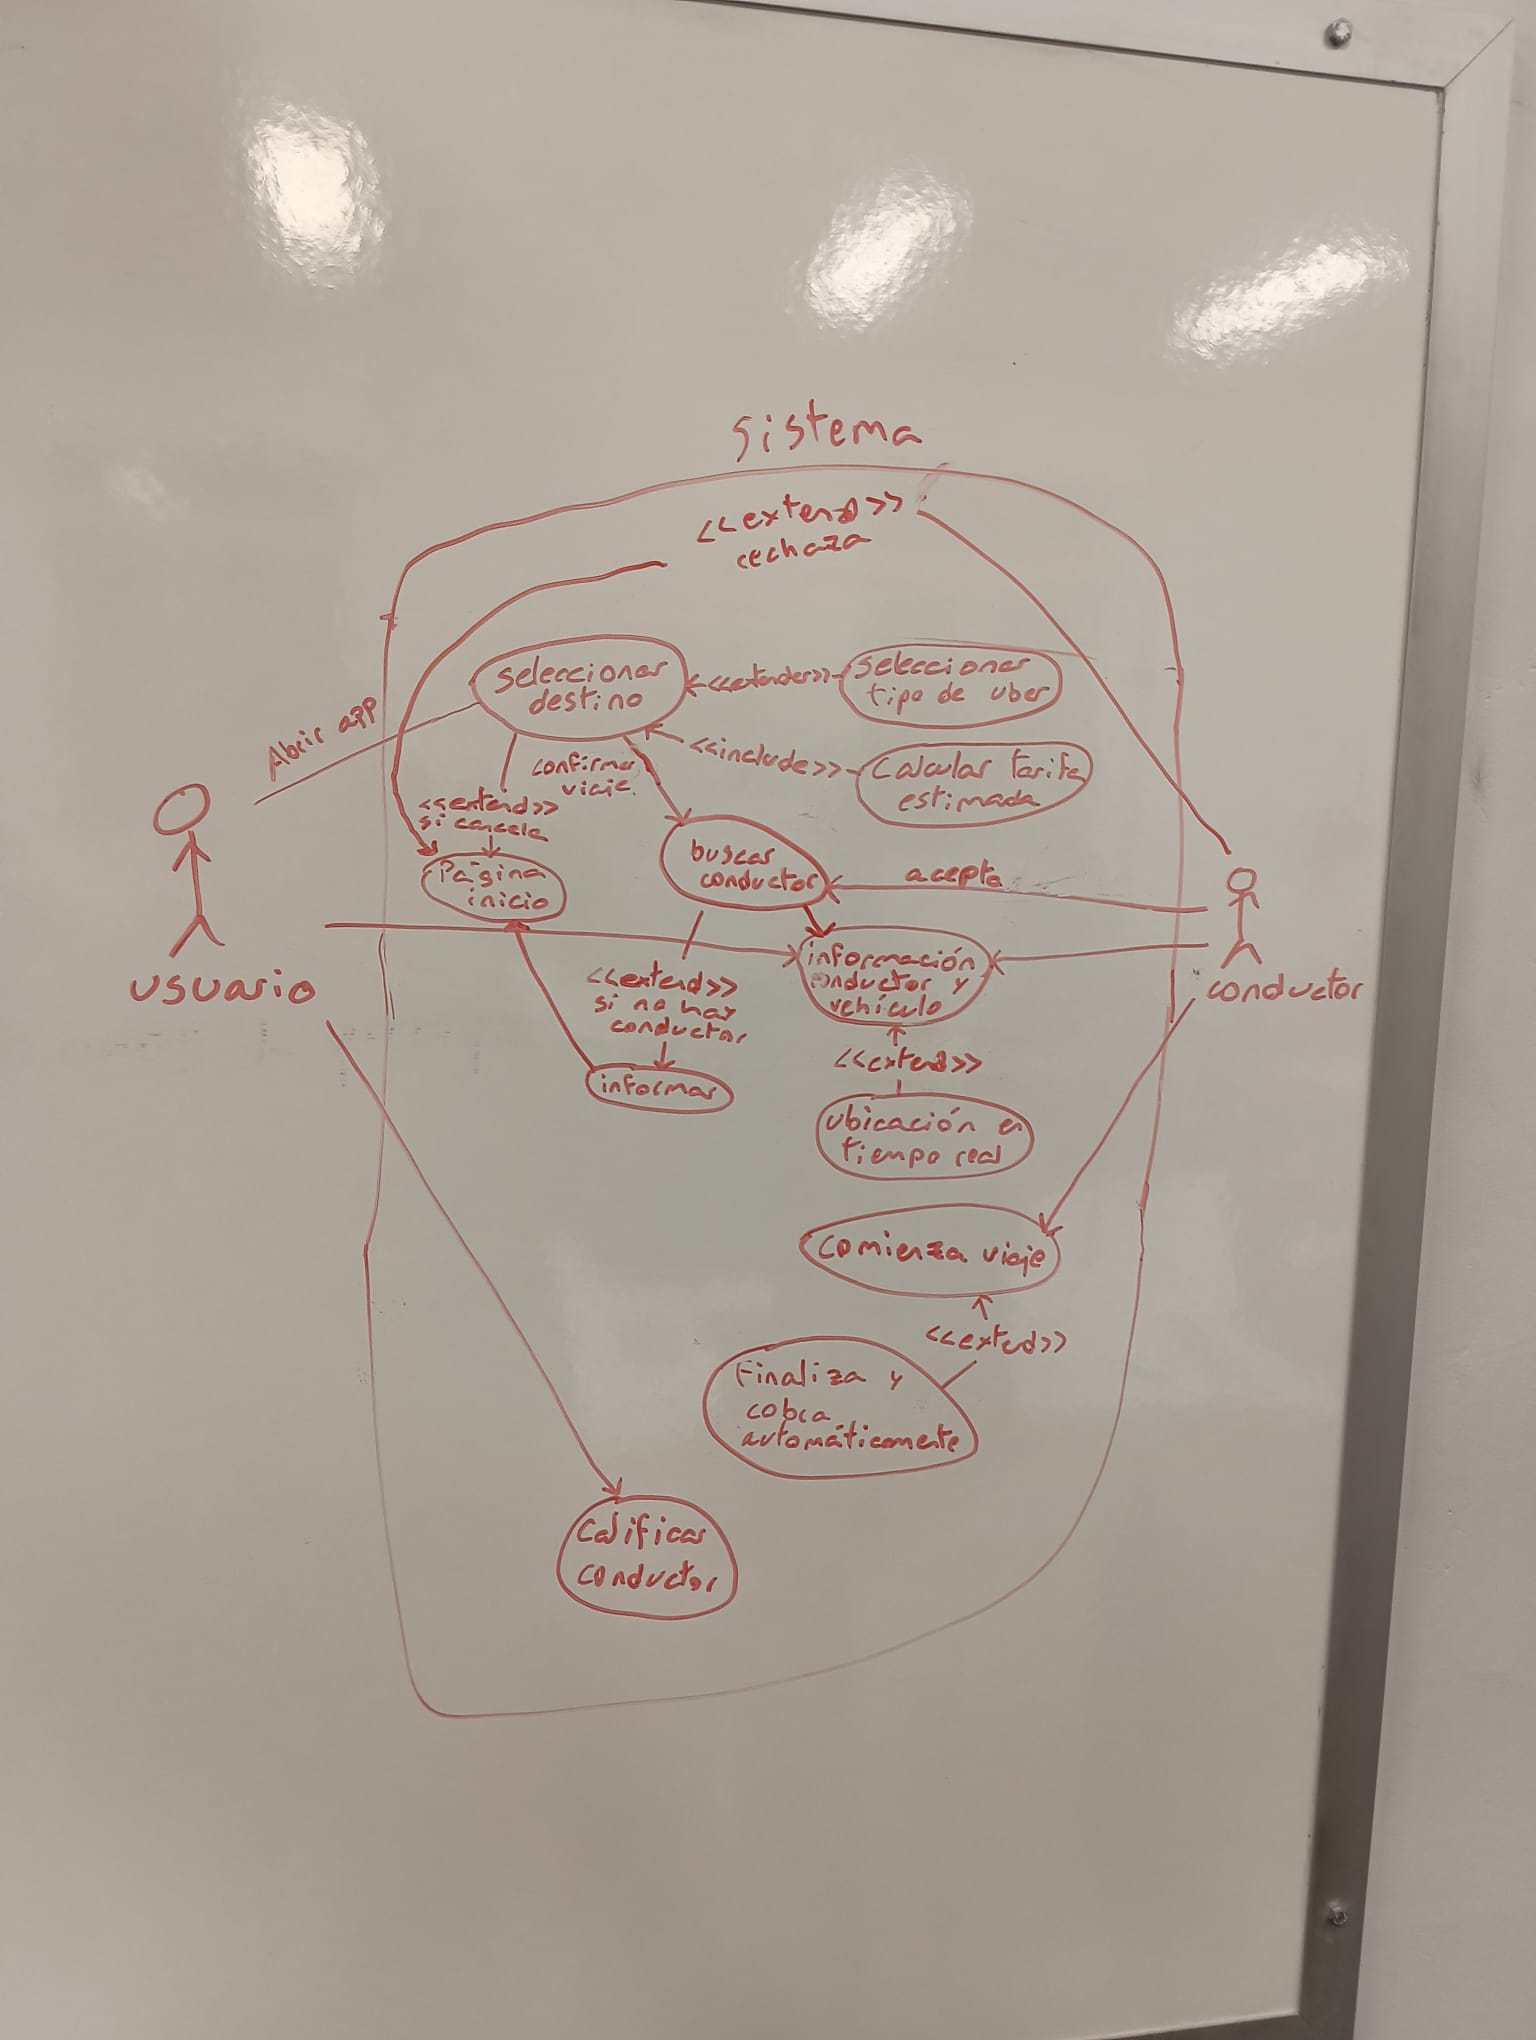 sistema
<<extend>>
rechaza
seleccionar
destino
<<extender>>
seleccionar
tipo de uber
Abrir app
confirmar
viaje.
<<include>>
Calcular tarifa
estimada
<<extend>>
si cancela
Página
inicio
buscar
conductor
acepta
usuario
conductor
información
conductor y
vehículo
<<extend>>
si no hay
conductor
informar
<<extend>>
ubicación en
tiempo real
comienza viaje
<<extend>>
Finaliza y
cobra
automáticamente
Calificar
conductor